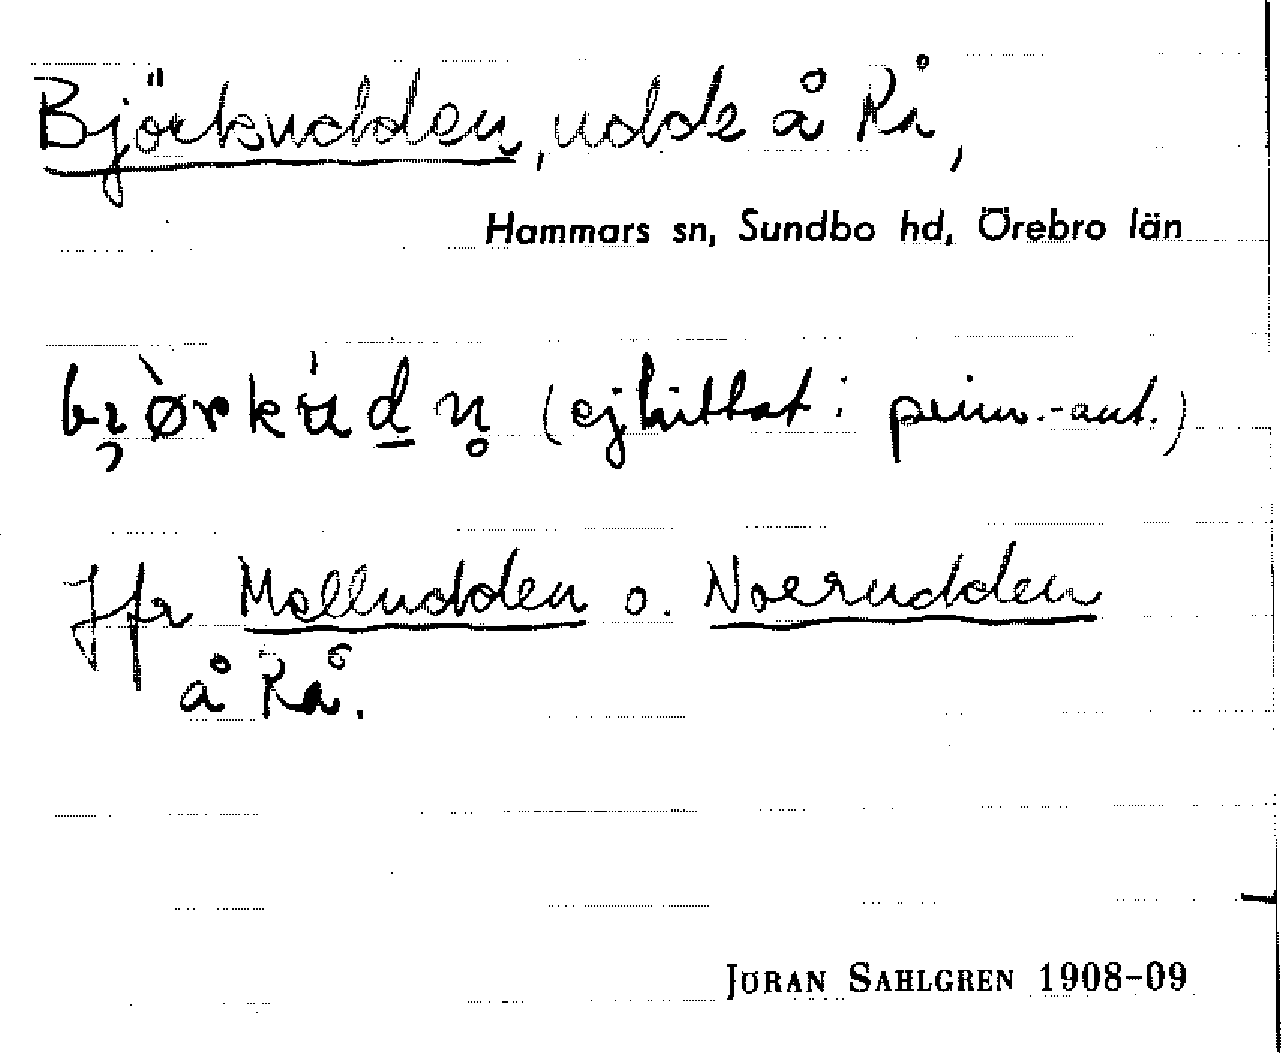 Björkudden, udde å Rå,
Hammars sn, Sundbo hd, Örebro län
(ej hittat i prim.-ant.)
Jfr Molludden o. Norrudden
å Rå.
JÖRAN SAHLGREN 1908-09